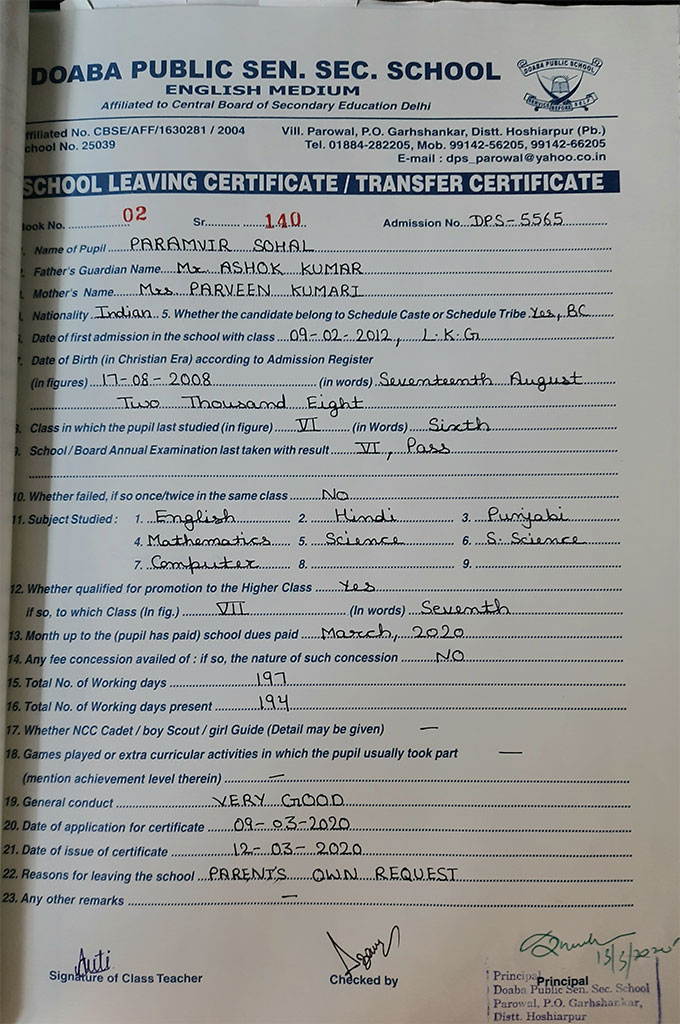 DOABA PUBLIC SEN. SEC. SCHOOL
ENGLISH MEDIUM
Affiliated to Central Board of Secondary Education Delhi
DOABA PUBLIC SCHOOL
SERVICE BEFORE SELF
ffiliated No. CBSE/AFF/1630281 / 2004 Vill. Parowal, P.O. Garhshankar, Distt. Hoshiarpur (Pb.)
chool No. 25039 Tel. 01884-282205, Mob. 99142-56205, 99142-66205
E-mail : dps_parowal@yahoo.co.in
SCHOOL LEAVING CERTIFICATE / TRANSFER CERTIFICATE
ook No. 02 Sr. 140 Admission No. DPS-5565
Name of Pupil PARAMVIR SOHAL
Father's Guardian Name Mr. ASHOK KUMAR
Mother's Name Mrs PARVEEN KUMARI
Nationality Indian 5. Whether the candidate belong to Schedule Caste or Schedule Tribe Yes, BC
Date of first admission in the school with class 09-02-2012, L.K.G
Date of Birth (in Christian Era) according to Admission Register
(in figures) 17-08-2008 (in words) Seventeenth August
Two Thousand Eight
Class in which the pupil last studied (in figure) VI (in Words) Sixth
School / Board Annual Examination last taken with result VI, Pass
10. Whether failed, if so once/twice in the same class NO
11. Subject Studied : 1. English 2. Hindi 3. Punjabi
4. Mathematics 5. Science 6. S. Science
7. Computer 8. 9.
12. Whether qualified for promotion to the Higher Class Yes
if so, to which Class (In fig.) VII (In words) Seventh
13. Month up to the (pupil has paid) school dues paid March, 2020
14. Any fee concession availed of : if so, the nature of such concession NO
15. Total No. of Working days 197
16. Total No. of Working days present 194
17. Whether NCC Cadet / boy Scout / girl Guide (Detail may be given) —
18. Games played or extra curricular activities in which the pupil usually took part —
(mention achievement level therein) —
19. General conduct VERY GOOD
20. Date of application for certificate 09-03-2020
21. Date of issue of certificate 12-03-2020
22. Reasons for leaving the school PARENT'S OWN REQUEST
23. Any other remarks —
13/3/2020
Signature of Class Teacher Checked by Principal
Principal
Doaba Public Sen. Sec. School
Parowal, P.O. Garhshankar,
Distt. Hoshiarpur